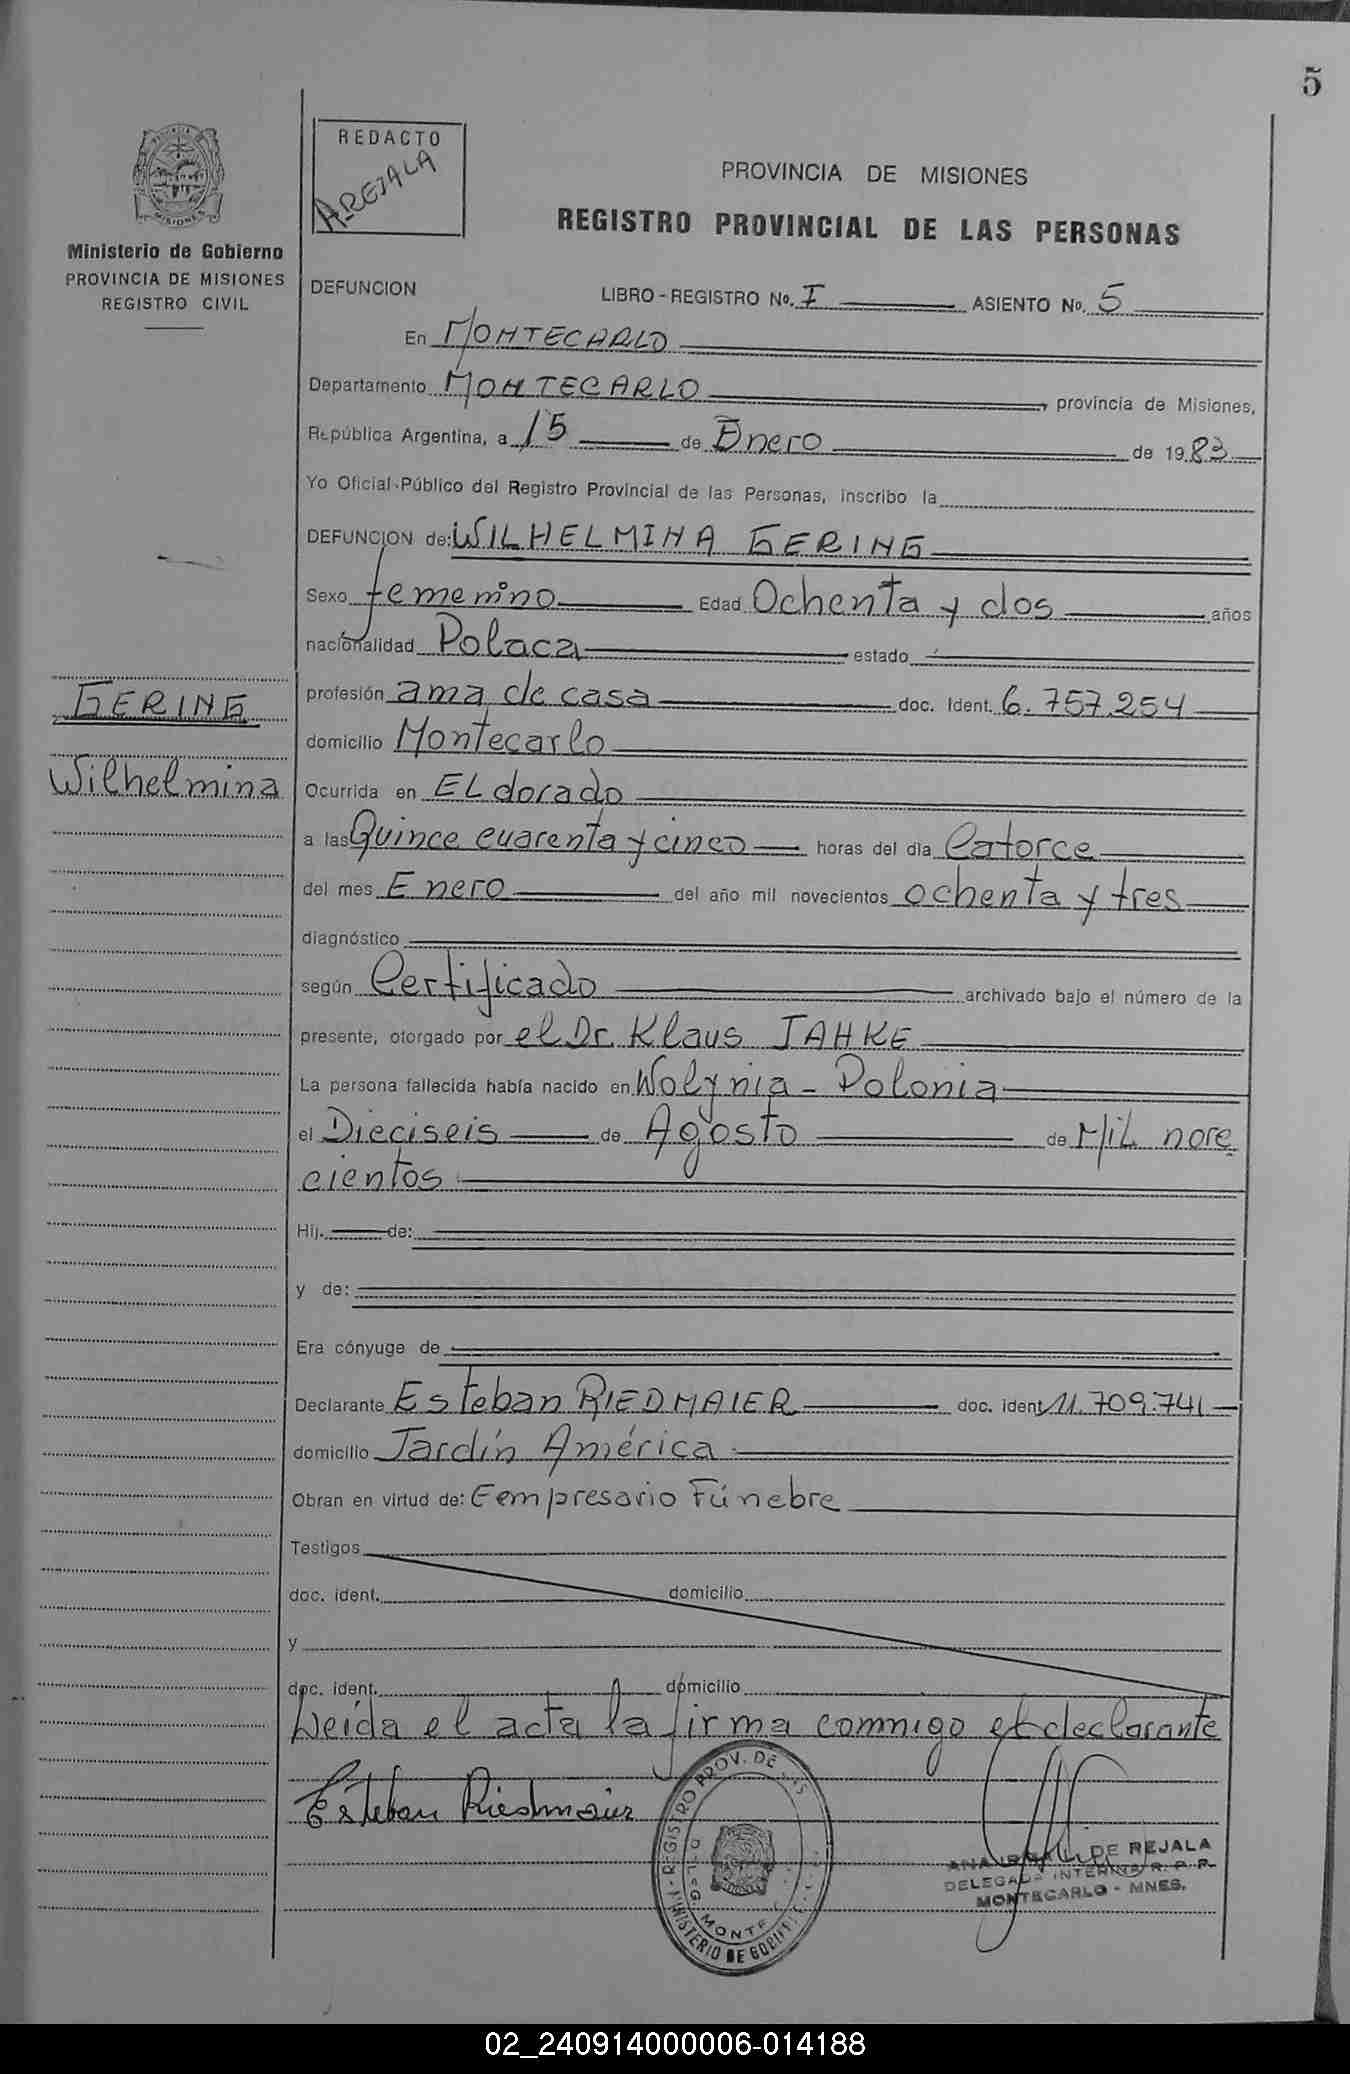 5
REDACTO
AREJALA
PROVINCIA DE MISIONES
REGISTRO PROVINCIAL DE LAS PERSONAS
Ministerio de Gobierno
PROVINCIA DE MISIONES
REGISTRO CIVIL
DEFUNCION LIBRO-REGISTRO No. I ASIENTO No. 5
En MONTECARLO
Departamento MONTECARLO, provincia de Misiones,
República Argentina, a 15 de Enero de 1983
Yo Oficial Público del Registro Provincial de las Personas, inscribo la
DEFUNCION de: WILHELMINA GERING
Sexo femenino Edad Ochenta y dos años
nacionalidad Polaca estado
GERING
Wilhelmina
profesión ama de casa doc. Ident. 6.757.254
domicilio Montecarlo
Ocurrida en ELdorado
a las Quince cuarenta y cinco horas del día Catorce
del mes Enero del año mil novecientos ochenta y tres
diagnóstico
según Certificado archivado bajo el número de la
presente, otorgado por el Dr. Klaus JAHKE
La persona fallecida había nacido en Wolynia - Polonia
el Dieciseis de Agosto de MiL nove
cientos
Hij. de:
y de:
Era cónyuge de
Declarante Esteban RIEDMAIER doc. ident 11.709.741
domicilio Jardín América
Obran en virtud de: Eempresario Fúnebre
Testigos
doc. ident. domicilio
y
doc. ident. domicilio
Leída el acta la firma conmigo el declarante
Esteban Riedmaier
REGISTRO PROV. DE LAS
MONTE
MINISTERIO DE GOBIERNO
ANA DE REJALA
DELEGADA INTERINA R. P. P.
MONTECARLO - MNES.
02_240914000006-014188